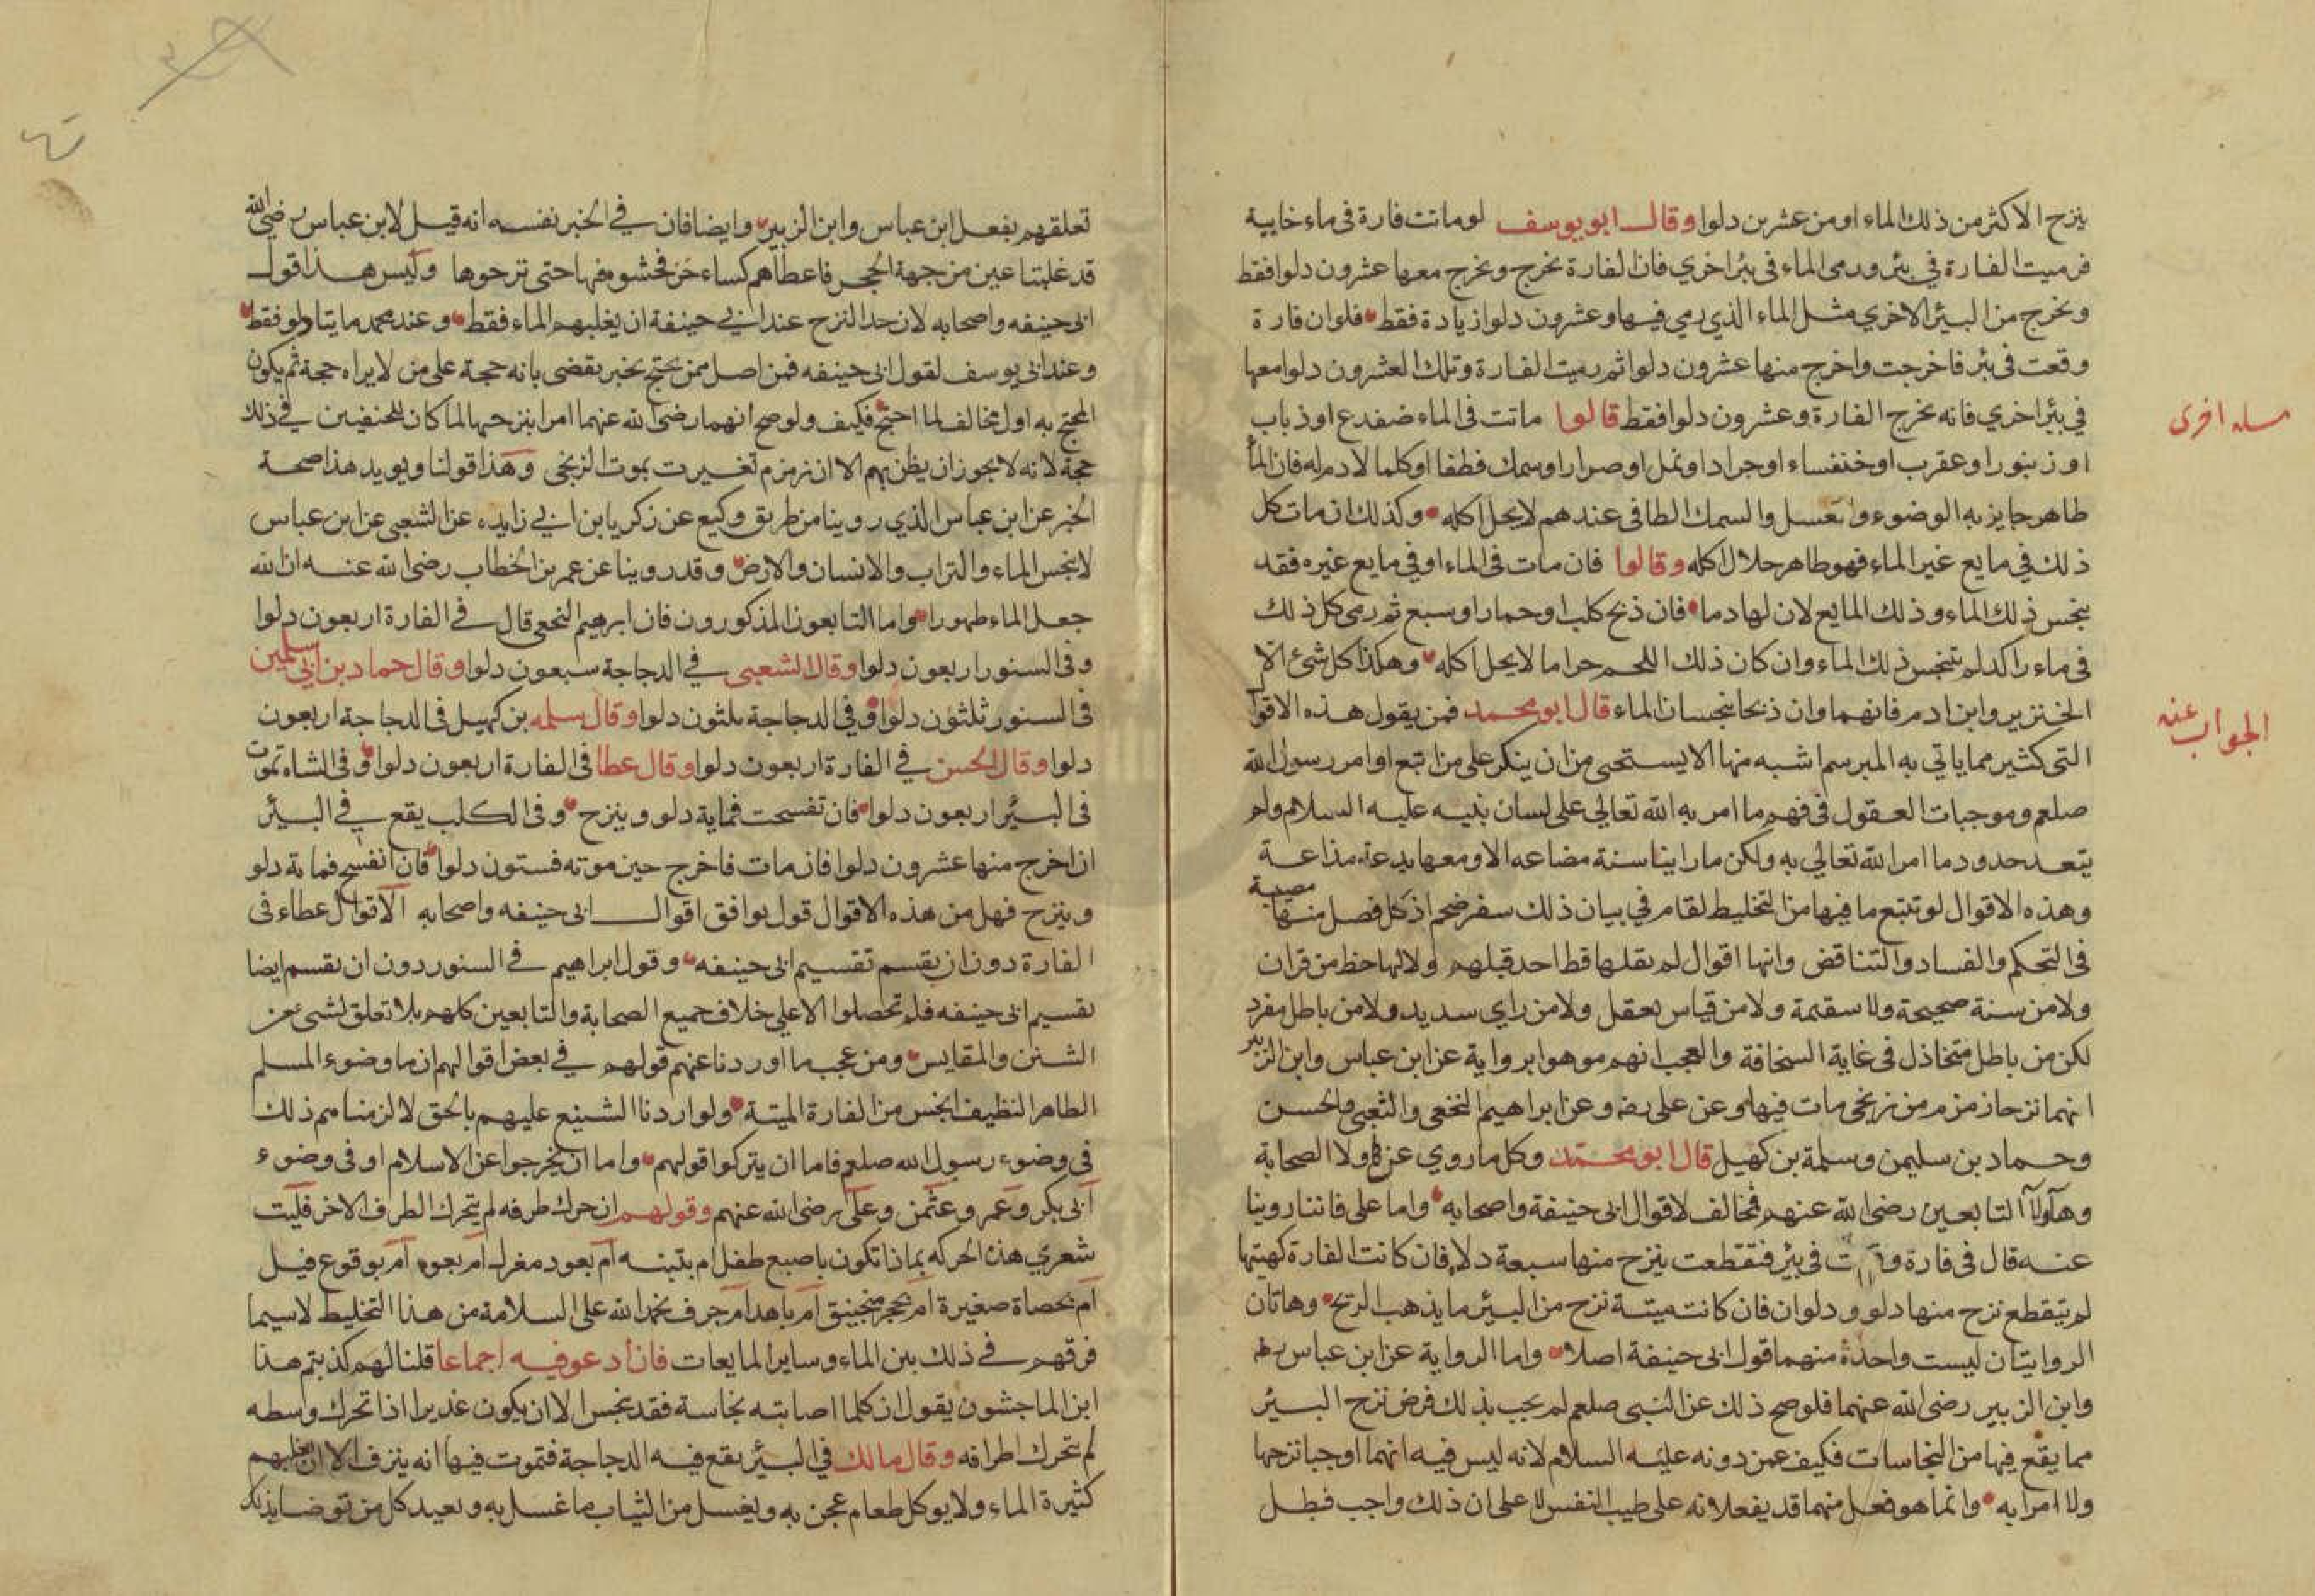 ينزح الاكثر من ذلك الماء او من عشرين دلوا وقال ابو يوسف لو ماتت فارة فى ماء خابية
فرميت الفارة في بئر ورمى الماء في بئر اخري فان الفارة تخرج وتخرج معها عشرون دلوا فقط
وتخرج من البير الاخري مثل الماء الذي رمي فيها وعشرون دلوا زيادة فقط فلو ان فارة
وقعت في بئر فاخرجت واخرج منها عشرون دلوا ثم رميت الفارة وتلك العشرون دلوا معها
في بئر اخري فانه تخرج الفارة وعشرون دلوا فقط قالوا ماتت فى الماء ضفدع او ذباب
مسله اخرى
او زنبور او عقرب او خنفساء او جراد او نمل او صرار او سمك فطفا او كلما لا دم له فان الماء
طاهر جايز به الوضوء و السمك الطافى عندهم لا يحل اكله وكذلك ان مات كل
ذلك في مايع غير الماء فهو طاهر حلال اكله وقالوا فان مات فى الماء او في مايع غيره فقد
ينجس ذلك الماء وذلك المايع لان لها دما فان ذبح كلب او حمار او سبع ثم رمى كل ذلك
فى ماء راكد لم يتنجس ذلك الماء وان كان ذلك اللحم حراما لا يحل اكله وهكذا كل شئ الا
الخنزير وابن ادم فانهما وان ذبحا ينجسان الماء قال ابو محمد فمن يقول هذه الاقوال
الجواب عنه
التى كثير مما ياتي به المبرسم اشبه منها الا يستحى من ان ينكر على من اتبع اوامر رسول الله
صلعم وموجبات العقول فى فهم ما امر به الله تعالي على لسان نبيه عليه السلام ولم
يتعد حدود ما امر الله تعالي به ولكن ما راينا سنة مضاعه الا ومعها بدعة مذاعة
وهذه الاقوال لو تتبع ما فيها من التخليط لقام في بيان ذلك سفر ضخم اذ كل فصل منها مصيبة
فى التحكم والفساد والتناقض وانها اقوال لم يقلها قط احد قبلهم ولا لها حظ من قران
ولا من سنة صحيحة ولا سقيمة ولا من قياس يعقل ولا من راي سديد ولا من باطل مفرد
لكن من باطل متخاذل فى غاية السخافة والعجب انهم موهوا برواية عن ابن عباس وابن الزبير
انهما نزحا زمزم من زنجى مات فيها وعن على رضه وعن ابراهيم النخعى والشعبى والحسن
وحماد بن سليمن وسلمة بن كهيل قال ابو محمد وكل ما روي عن هاولا الصحابة
وهآولاآ التابعين رضى الله عنهم فمخالف لاقوال ابى حنيفة واصحابه واما على فاننا روينا
عنه قال فى فارة في بير فتقطعت ينزح منها سبعة دلاء فان كانت الفارة كهيئتها
لم يتقطع نزح منها دلو ودلوان فان كانت ميتة نزح من البير ما يذهب الريح وهاتان
الروايتان ليست واحدة منهما قول ابى حنيفة اصلا واما الرواية عن ابن عباس
وابن الزبير رضى الله عنهما فلو صح ذلك عن النبى صلعم لم يجب بذلك فرض نزح البير
مما يقع فيها من النجاسات فكيف عمن دونه عليه السلام لانه ليس فيه انهما اوجبا نزحها
ولا امرا به وانما هو فعل منهما قد يفعلانه على طيب النفس لا على ان ذلك واجب فبطل
تعلقهم بفعل ابن عباس وابن الزبير وايضا فان في الخبر نفسه انه قيل لابن عباس رضى الله
قد غلبتنا عين من جهة الحجر فاعطاهم كساء خز فحشوه فيها حتى نزحوها وليس هذا قول
ابى حنيفه واصحابه لان حد النزح عند ابي حنيفة ان يغلبهم الماء فقط وعند محمد مايتا دلو فقط
وعند ابى يوسف لقول ابى حنيفه فمن اصل ممن يحتج بخبر يقضى بانه حجة على من لا يراه حجة ثم يكون
المحتج به اول مخالف لما احتج فكيف ولو صح انهما رضى الله عنهما امرا بنزحها لما كان للحنفيين في ذلك
حجة لانه لا يجوز ان يظن بهم الا ان زمزم تغيرت بموت الزنجى وهذا قولنا ويويد هذا صحة
الخبر عن ابن عباس الذي روينا من طريق وكيع عن زكريا بن ابي زايده عن الشعبى عن ابن عباس
لا ينجس الماء والتراب والانسان والارض وقد روينا عن عمر بن الخطاب رضى الله عنه ان الله
جعل الماء طهورا واما التابعون المذكورون فان ابرهيم النخعى قال في الفارة اربعون دلوا
وفى السنور اربعون دلوا وقال الشعبى في الدجاجة سبعون دلوا وقال حماد بن ابى سلمين
فى السنور ثلثون دلوا وفي الدجاجة ثلثون دلوا وقال سلمه بن كهيل فى الدجاجة اربعون
دلوا وقال الحسن في الفارة اربعون دلوا وقال عطا فى الفارة اربعون دلوا وفى الشاه تموت
فى البير اربعون دلوا فان تفسخت فماية دلو وينزح وفى الكلب يقع في البير
ان اخرج منها عشرون دلوا فان مات فاخرج حين موته فستون دلوا فان انفسخ فمائة دلو
وينزح فهل من هذه الاقوال قول يوافق اقوال ابى حنيفه واصحابه الا قول عطاء فى
الفارة دون ان يقسم تقسيم ابى حنيفه وقول ابراهيم في السنور دون ان يقسم ايضا
تقسيم ابى حنيفه فلم تحصلوا الا على خلاف جميع الصحابة والتابعين كلهم بلا تعلق بشئ من
السنن والمقايس ومن عجب ما اوردنا عنهم قولهم في بعض اقوالهم ان ماء وضوء المسلم
الطاهر النظيف انجس من الفارة الميتة ولو اردنا التشنيع عليهم بالحق لالزمناهم ذلك
فى وضوء رسول الله صلعم فاما ان يتركوا قولهم واما ان يخرجوا عن الاسلام او فى وضوء
ابى بكر وعمر وعثمن وعلى رضى الله عنهم وقولهم ان حرك طرفه لم يتحرك الطرف الاخر فليت
شعري هذه الحركه بماذا تكون باصبع طفل ام بتبنه ام بعود مغزل ام بعوم ام بوقوع فيل
ام بحصاة صغيرة ام بحجر منجنيق ام بانهدام جرف نحمد الله على السلامة من هذا التخليط لا سيما
فرقهم في ذلك بين الماء وساير المايعات فان ادعوا فيه اجماعا قلنا لهم كذبتم هذا
ابن الماجشون يقول ان كلما اصابته نجاسة فقد تنجس الا ان يكون غديرا اذا تحرك وسطه
لم تتحرك اطرافه وقال مالك في البير يقع فيه الدجاجة فتموت فيها انه ينزف الا ان تغلبهم
كثيرة الماء ولا يوكل طعام عجن به ويغسل من الثياب ما غسل به ويعيد كل من توضا بذلك